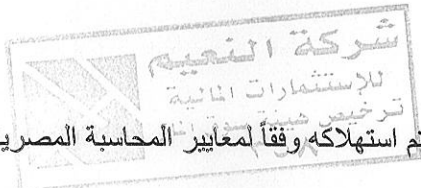 شركة النعيم
للإستثمارات المالية
ترخيص هيئة سوق
تم استهلاكه وفقاً لمعايير المحاسبة المصرية